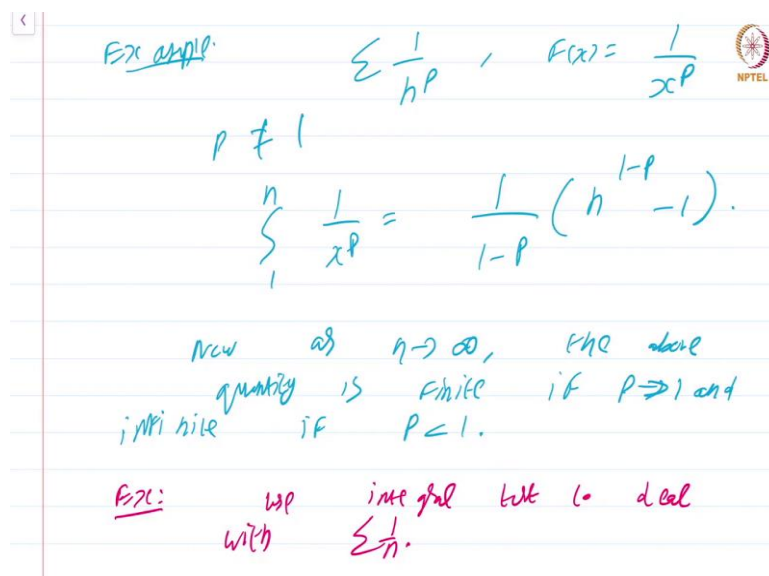 Example. Σ 1/n^p , F(x) = 1/x^p
NPTEL
p ≠ 1
∫_1^n 1/x^p = 1/(1-p) (n^(1-p) - 1).
Now as n → ∞, the above
quantity is finite if p > 1 and
infinite if p < 1.
Ex: use integral test to deal
with Σ 1/n.